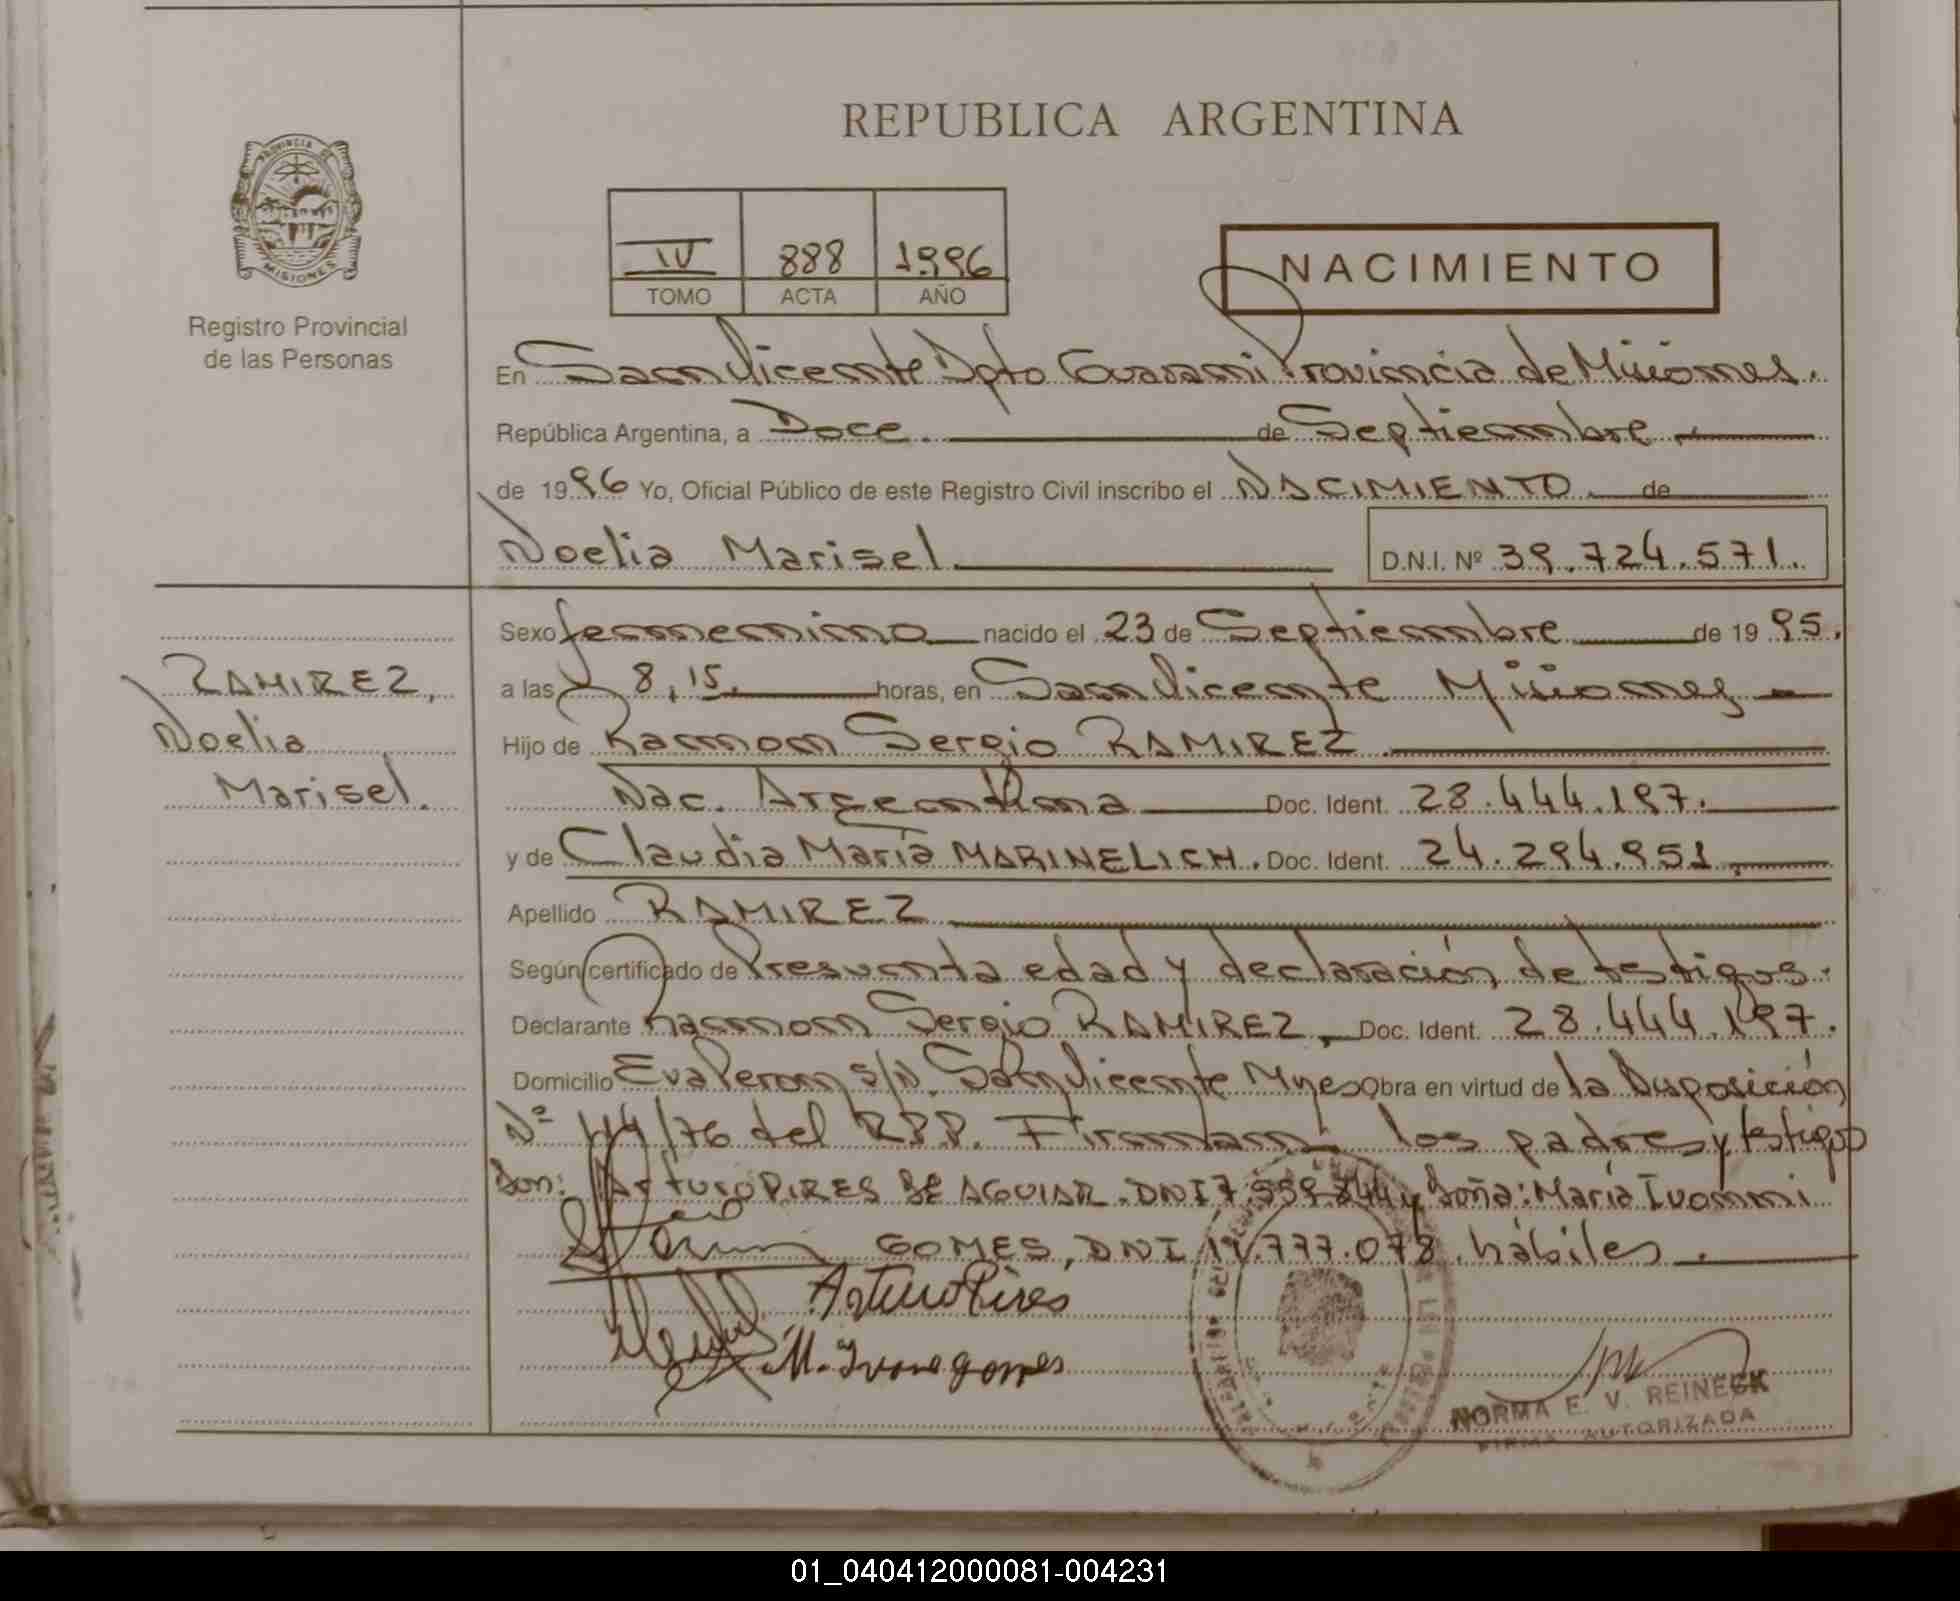 REPUBLICA ARGENTINA
PROVINCIA DE
MISIONES
Registro Provincial
de las Personas
IV 888 1996
TOMO ACTA AÑO
NACIMIENTO
En San Vicente Dpto Guarani Provincia de Misiones.
República Argentina, a Doce. de Septiembre
de 1996 Yo, Oficial Público de este Registro Civil inscribo el NACIMIENTO de
Noelia Marisel D.N.I. Nº 39.724.571.
Sexo femenino nacido el 23 de Septiembre de 1995.
RAMIREZ,
Noelia
Marisel.
a las 8,15. horas, en San Vicente Misiones
Hijo de Ramon Sergio RAMIREZ.
Nac. Argentina Doc. Ident. 28.444.197.
y de Claudia María MARINELICH. Doc. Ident. 24.294.951
Apellido RAMIREZ
Según certificado de Presunta edad y declaración de testigos.
Declarante Ramon Sergio RAMIREZ, Doc. Ident. 28.444.197.
Domicilio Eva Peron s/N. San Vicente Mnes Obra en virtud de la Disposición
Nº 114/76 del R.P.P. Firman los padres y testigos
Don: Arturo PIRES DE AGUIAR. DNI 7.559.844 y Doña: María Ivonni
GOMES, DNI 17.777.078. hábiles.
Arturo Pires
M. Ivone gomes
NORMA E. V. REINECK
FIRMA AUTORIZADA
01_040412000081-004231